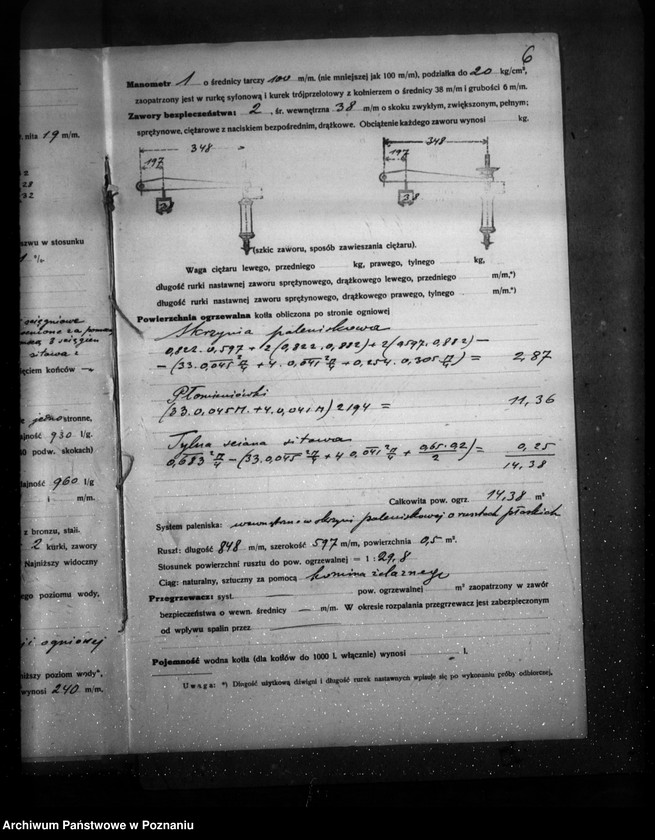 6
Manometr 1 o średnicy tarczy 100 m/m. (nie mniejszej jak 100 m/m), podziałka do 20 kg/cm²,
zaopatrzony jest w rurkę syfonową i kurek trójprzelotowy z kołnierzem o średnicy 38 m/m i grubości 6 m/m.
Zawory bezpieczeństwa: 2, śr. wewnętrzna 38 m/m o skoku zwykłym, zwiększonym, pełnym;
sprężynowe, ciężarowe z naciskiem bezpośrednim, drążkowe. Obciążenie każdego zaworu wynosi kg.
348
197
348
197
38
(szkic zaworu, sposób zawieszania ciężaru).
Waga ciężaru lewego, przedniego kg, prawego, tylnego kg,
długość rurki nastawnej zaworu sprężynowego, drążkowego lewego, przedniego m/m,*)
długość rurki nastawnej zaworu sprężynowego, drążkowego prawego, tylnego m/m.*)
Powierzchnia ogrzewalna kotła obliczona po stronie ogniowej
Skrzynia paleniskowa
0,822 . 0,597 + 2 (0,822 . 0,882) + 2 (0,597 . 0,882) –
– (33 . 0,045² π/4 + 4 . 0,041² π/4 + 0,254 . 0,305 π/4) = 2,87
Płomieniówki
(33 . 0,045 π + 4 . 0,041 π) 2194 = 11,36
Tylna ściana sitowa
0,683² π/4 – (33 . 0,045² π/4 + 4 0,041² π/4 + 0,65 . 0,2 / 2) = 0,25
14,38
Całkowita pow. ogrz. 14,38 m²
System paleniska: wewnątrz w skrzyni paleniskowej o rusztach płaskich
Ruszt: długość 848 m/m, szerokość 597 m/m, powierzchnia 0,5 m².
Stosunek powierzchni rusztu do pow. ogrzewalnej = 1 : 29,8
Ciąg: naturalny, sztuczny za pomocą komina żelaznego
Przegrzewacz: syst. pow. ogrzewalnej m² zaopatrzony w zawór
bezpieczeństwa o wewn. średnicy — m/m. W okresie rozpalania przegrzewacz jest zabezpieczonym
od wpływu spalin przez
Pojemność wodna kotła (dla kotłów do 1000 l. włącznie) wynosi l.
Uwaga: *) Długość użytkową dźwigni i długość rurek nastawnych wpisuje się po wykonaniu próby odbiorczej.
nita 19 m/m.
28
32
w stosunku
sitowa
ięciem końców —
jednostronne,
930 l/g.
podw. skokach)
960 l/g
i m/m.
z bronzu, stali.
2 kurki, zawory
Najniższy widoczny
ego poziomu wody,
ogniowej
niższy poziom wody*,
wynosi 240 m/m.
Archiwum Państwowe w Poznaniu